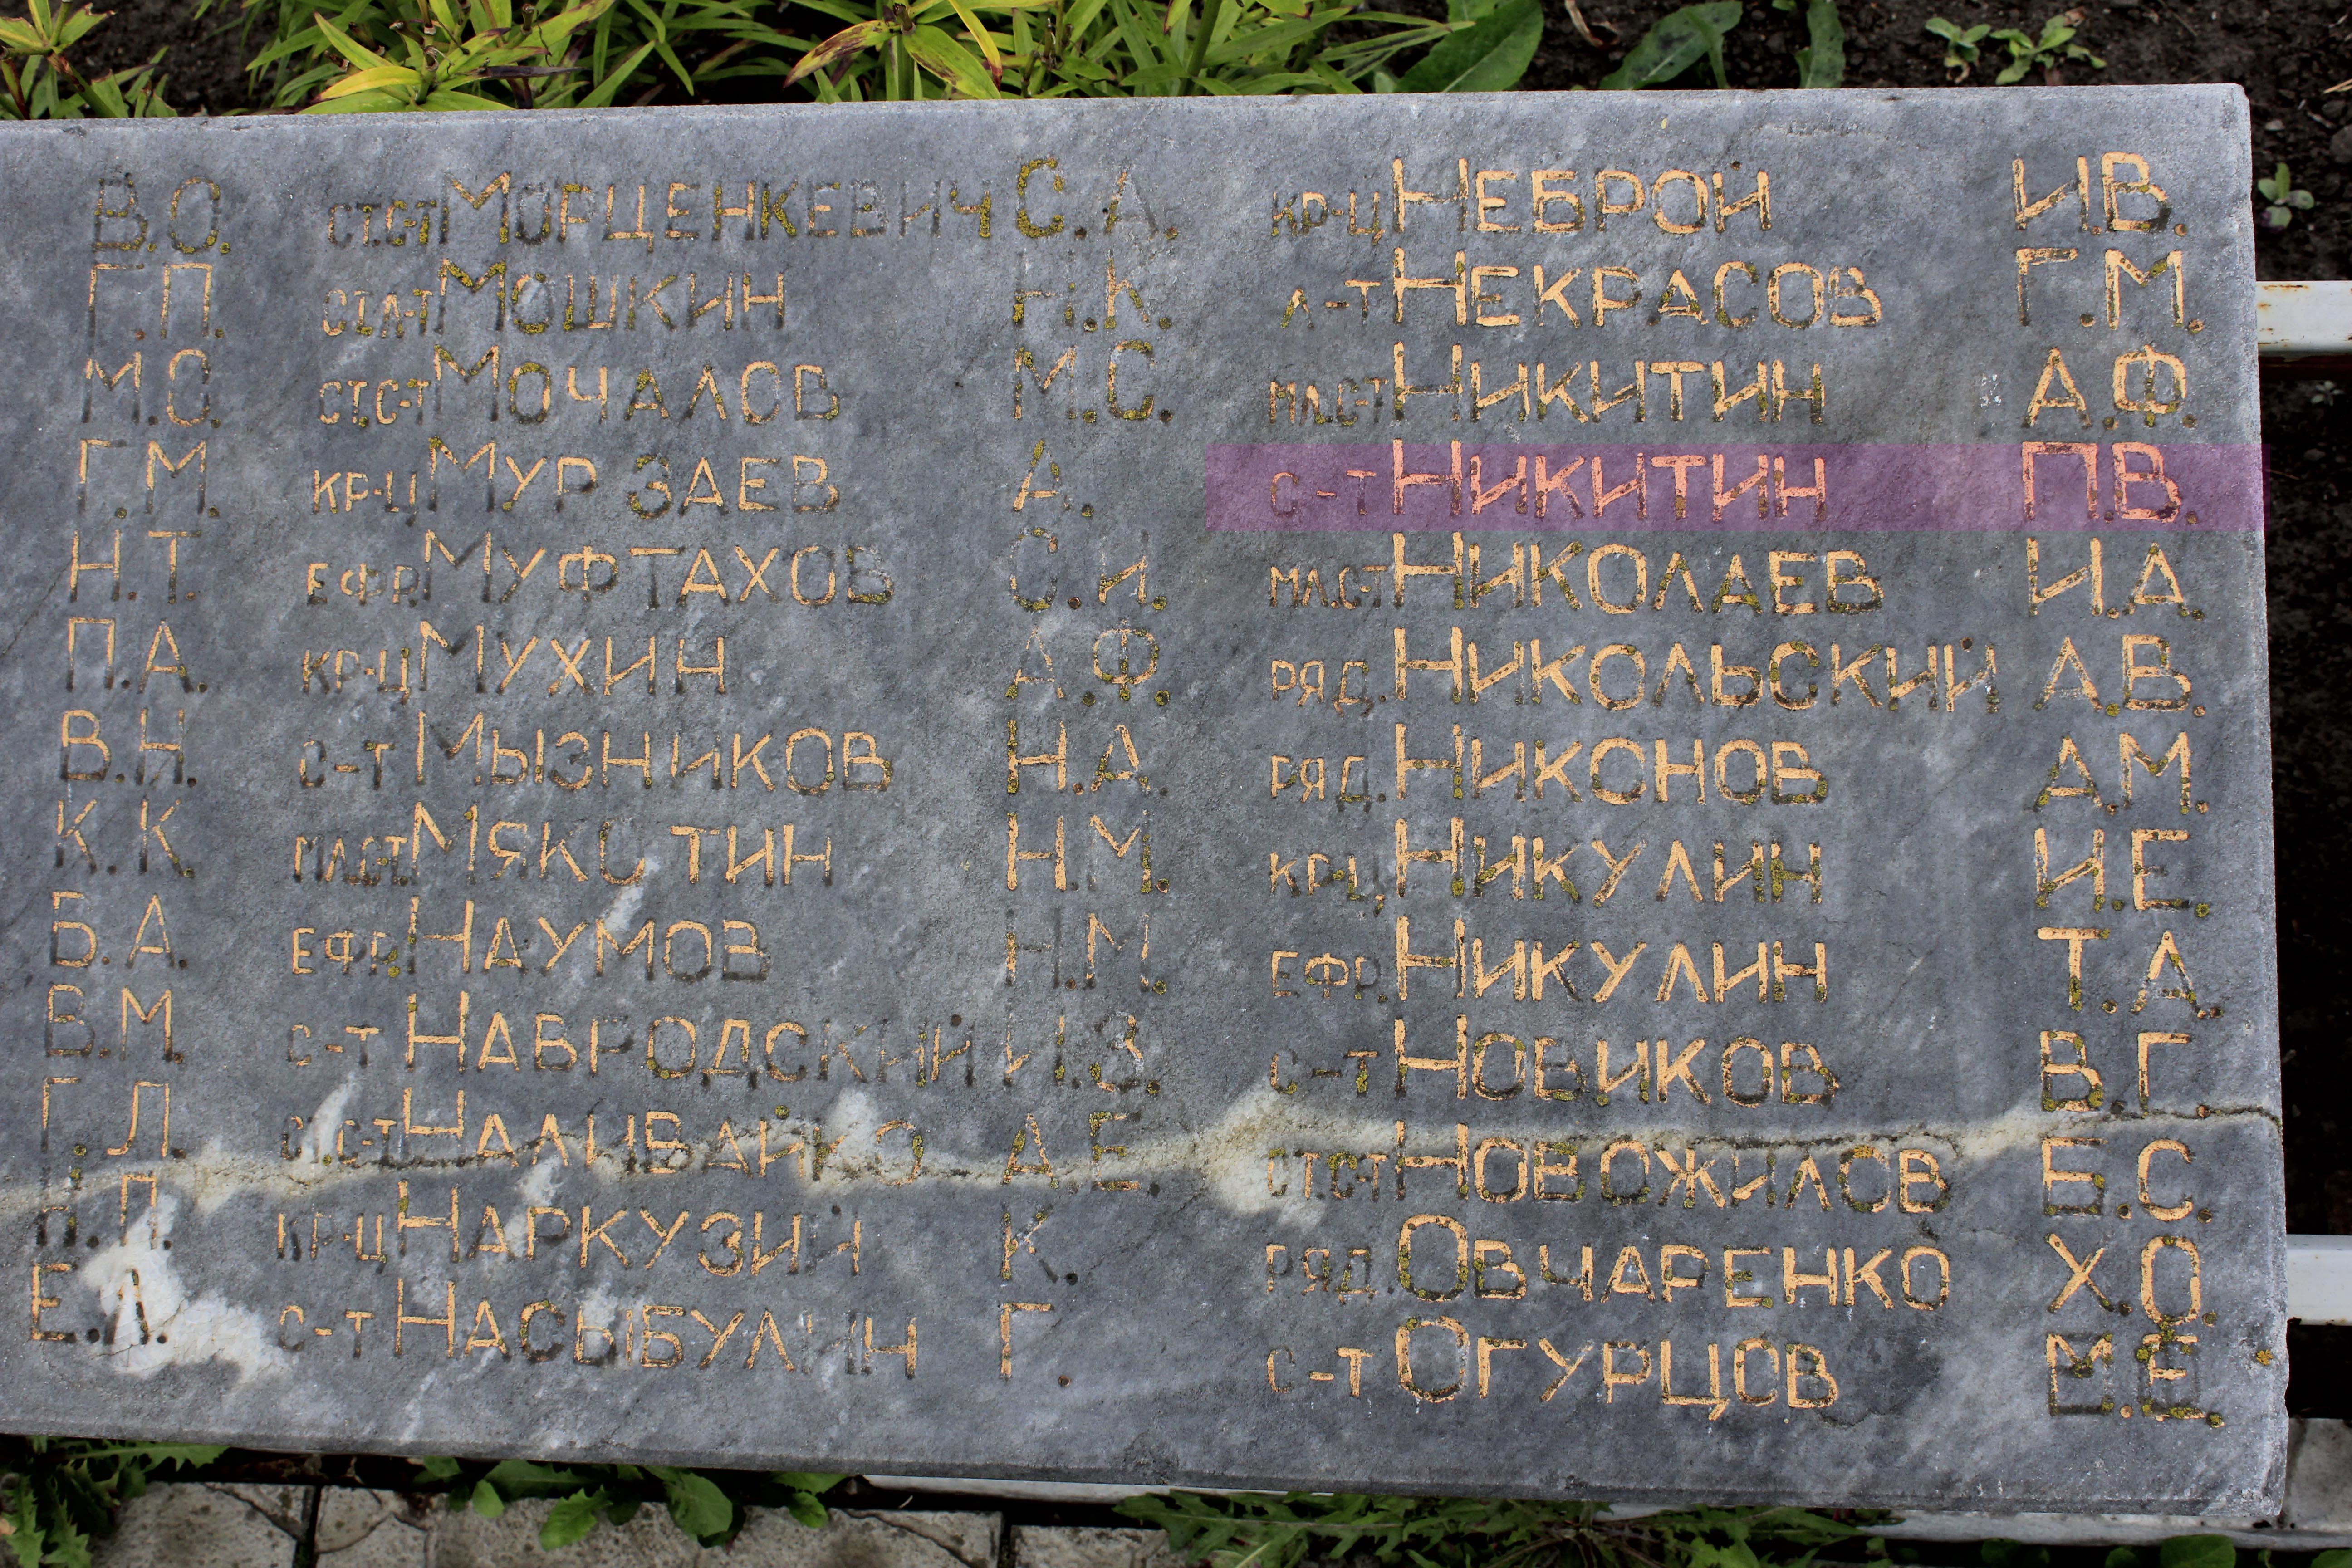 В.О.
Г.П.
М.О.
Г.М.
Н.Т.
П.А.
В.Н.
К.К.
Б.А.
В.М.
Г.Л.
П.П.
Е.А.
СТ.С-Т МОРЦЕНКЕВИЧ С.А.
СТ.Л-Т МОШКИН Н.К.
СТ.С-Т МОЧАЛОВ М.С.
КР-Ц МУРЗАЕВ А.
ЕФР. МУФТАХОВ С.И.
КР-Ц МУХИН А.Ф.
С-Т МЫЗНИКОВ Н.А.
МЛ.С-Т МЯКОТИН Н.М.
ЕФР. НАУМОВ Н.М.
С-Т НАБРОДСКИЙ И.З.
СТ.С-Т НАЛИВАЙКО А.Е.
КР-Ц НАРКУЗИН К.
С-Т НАСЫБУЛИН Г.
КР-Ц НЕБРОЙ И.В.
Л-Т НЕКРАСОВ Г.М.
МЛ.С-Т НИКИТИН А.Ф.
С-Т НИКИТИН П.В.
МЛ.С-Т НИКОЛАЕВ И.А.
РЯД. НИКОЛЬСКИЙ А.В.
РЯД. НИКОНОВ А.М.
КР-Ц НИКУЛИН И.Е.
ЕФР. НИКУЛИН Т.А.
С-Т НОВИКОВ В.Г.
СТ.С-Т НОВОЖИЛОВ Б.С.
РЯД. ОВЧАРЕНКО Х.О.
С-Т ОГУРЦОВ М.Е.